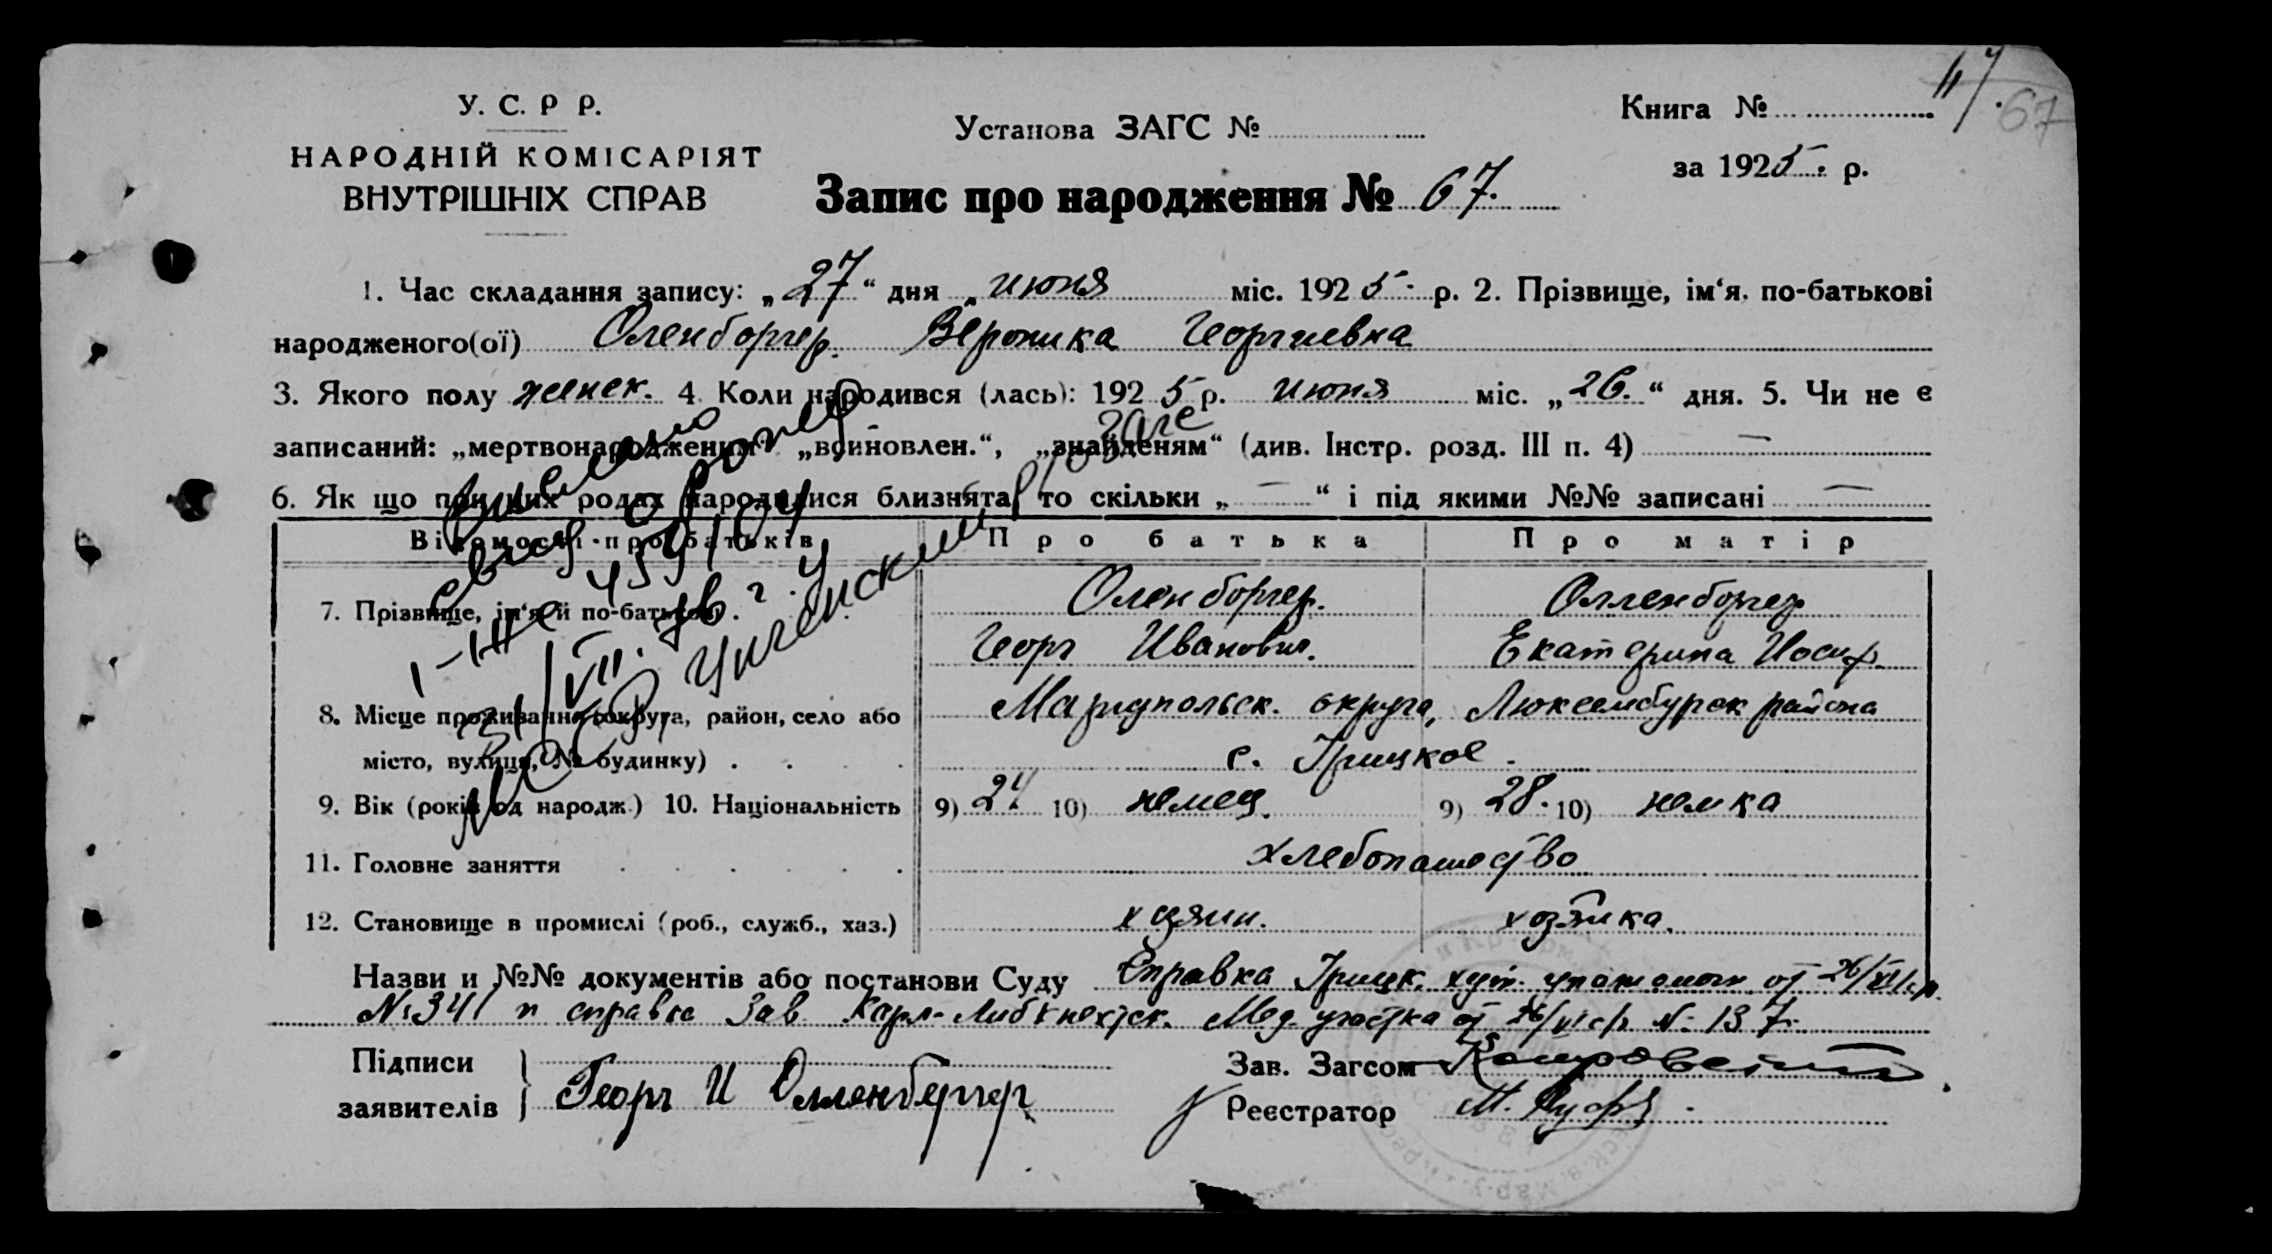 У. С. Р Р.
НАРОДНІЙ КОМІСАРІЯТ
ВНУТРІШНІХ СПРАВ
Установа ЗАГС №
Книга №
67
за 1925 р.
Запис про народження № 67.
1. Час складання запису: „27“ дня „июня міс. 1925 р. 2. Прізвище, ім‘я, по-батькові
народженого(ої) Оленборгер. Вероника Георгиевна
3. Якого полу женск. 4 Коли народився (лась): 1925 р. июня міс. „26.“ дня. 5. Чи не є
записаний: „мертвонародженим“ „всиновлен.“, „знайденям“ (див. Інстр. розд. III п. 4) —
6. Як що при цих родах народилися близнята, то скільки „—“ і під якими №№ записані —
Відомості про батьків Про батька Про матір
7. Прізвище, ім‘я й по-батькові . Оленборгер. Олленборгер
Георг Иванович. Екатерина Иосиф.
8. Місце проживання (округа, район, село або Мариупольск. округа, Люксембургск района
місто, вулиця, № будинку) . с. Грицкое.
9. Вік (років од народж.) 10. Національність 9) 24 10) немец. 9) 28. 10) немка
11. Головне заняття хлебопашество
12. Становище в промислі (роб., служб., хаз.) хозяин. хозяйка.
Назви и №№ документів або постанови Суду Справка Грицк. от 26/
№ 341 и справка Зав Карл-Либкнехтск. Мед. участка от 26/VI с/г. № 137.
Підписи
заявителів
Георг И Олленбергер
Зав. Загсом
Реєстратор М.
Выслано
свид о рожд